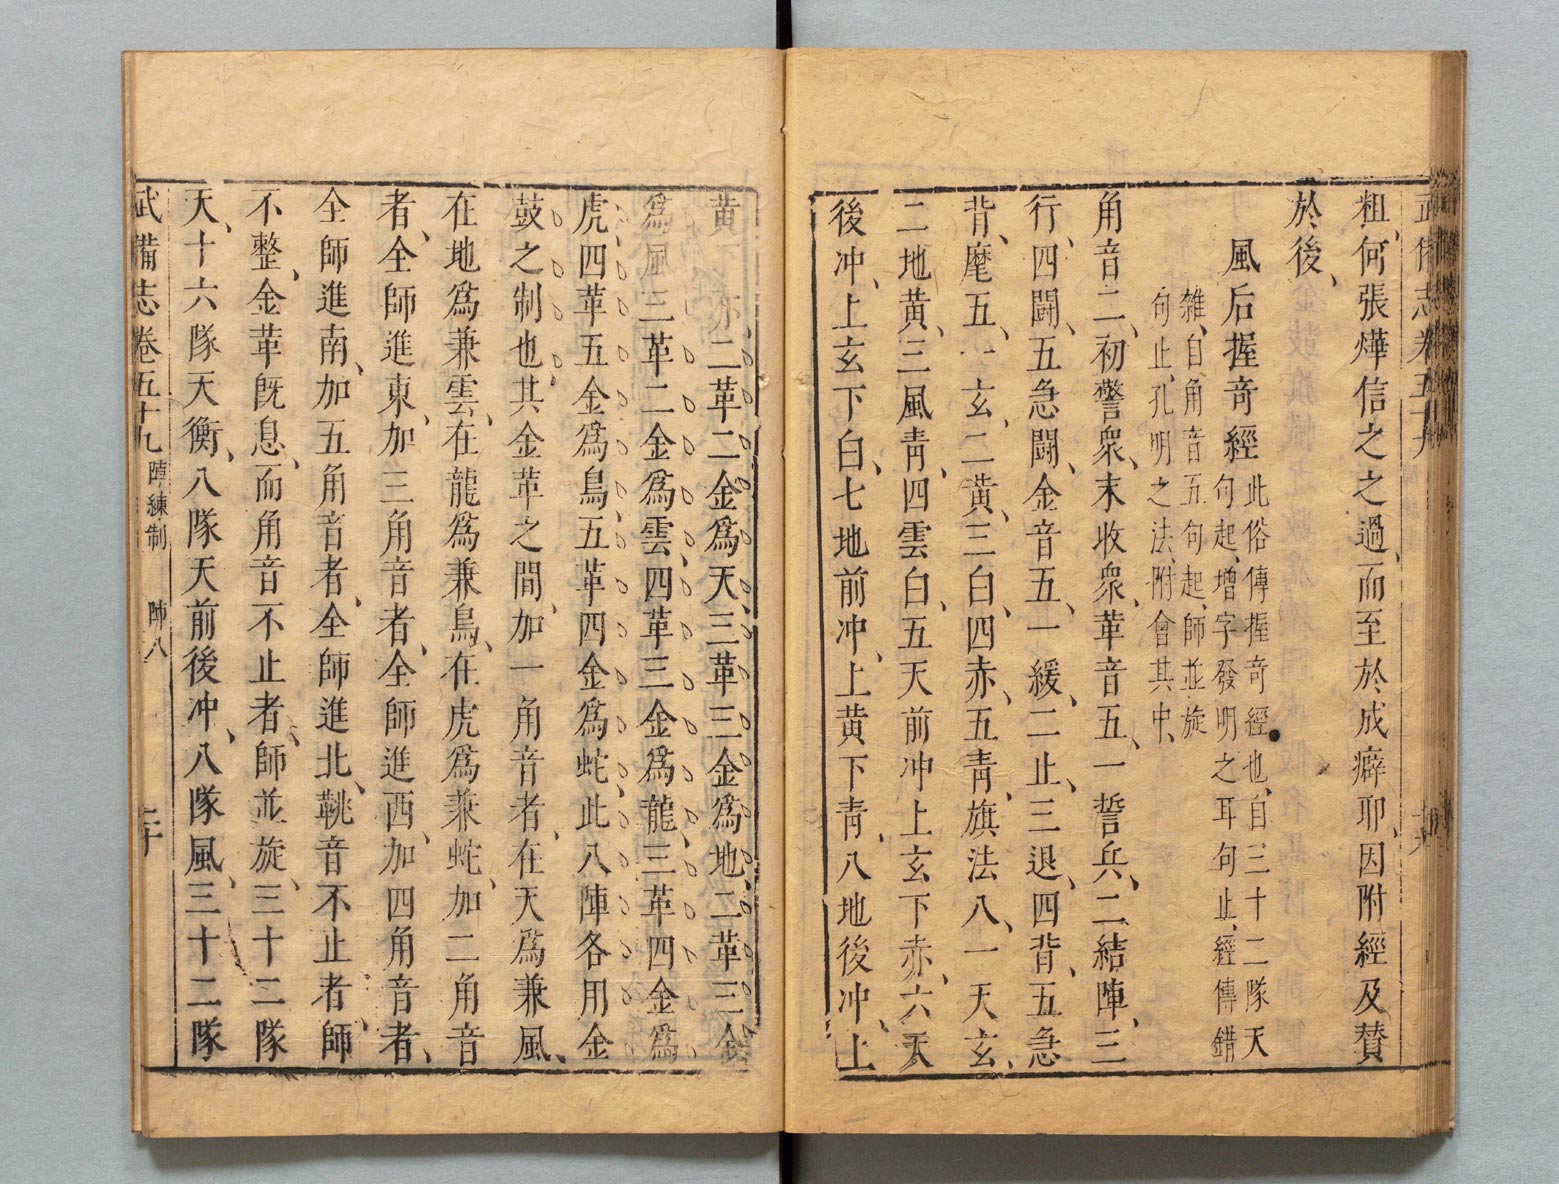 粗、何張燁信之之過、而至於成癖耶、因附經及贊
於後、
風后握奇經
此俗傳握奇經也、自三十二隊天
句起、增字發明之耳句止、經傳錯
雜、自角音五句起、師並旋
句止、孔明之法、附會其中、
角音二、初警衆、末收衆、革音五、一誓兵、二結陣、三
行、四鬪、五急鬪、金音五、一緩、二止、三退、四背、五急
背、麾五、一玄、二黃、三白、四赤、五青、旗法八、一天玄、
二地黃、三風青、四雲白、五天前冲上玄下赤、六天
後冲、上玄下白、七地前冲、上黃下青、八地後冲、上
黃下赤、二革二金爲天、三革三金爲地、二革三金
爲風、三革二金爲雲、四革三金爲龍、三革四金爲
虎、四革五金爲鳥、五革四金爲蛇、此八陣各用金
鼓之制也、其金革之間、加一角音者、在天爲兼風、
在地爲兼雲、在龍爲兼鳥、在虎爲兼蛇、加二角音
者、全師進東、加三角音者、全師進西、加四角音者、
全師進南、加五角音者、全師進北、鞉音不止者、師
不整、金革既息、而角音不止者、師並旋、三十二隊
天、十六隊天衡、八隊天前後冲、八隊風、三十二隊
武備志卷五十九 陣練制 陣八 二十